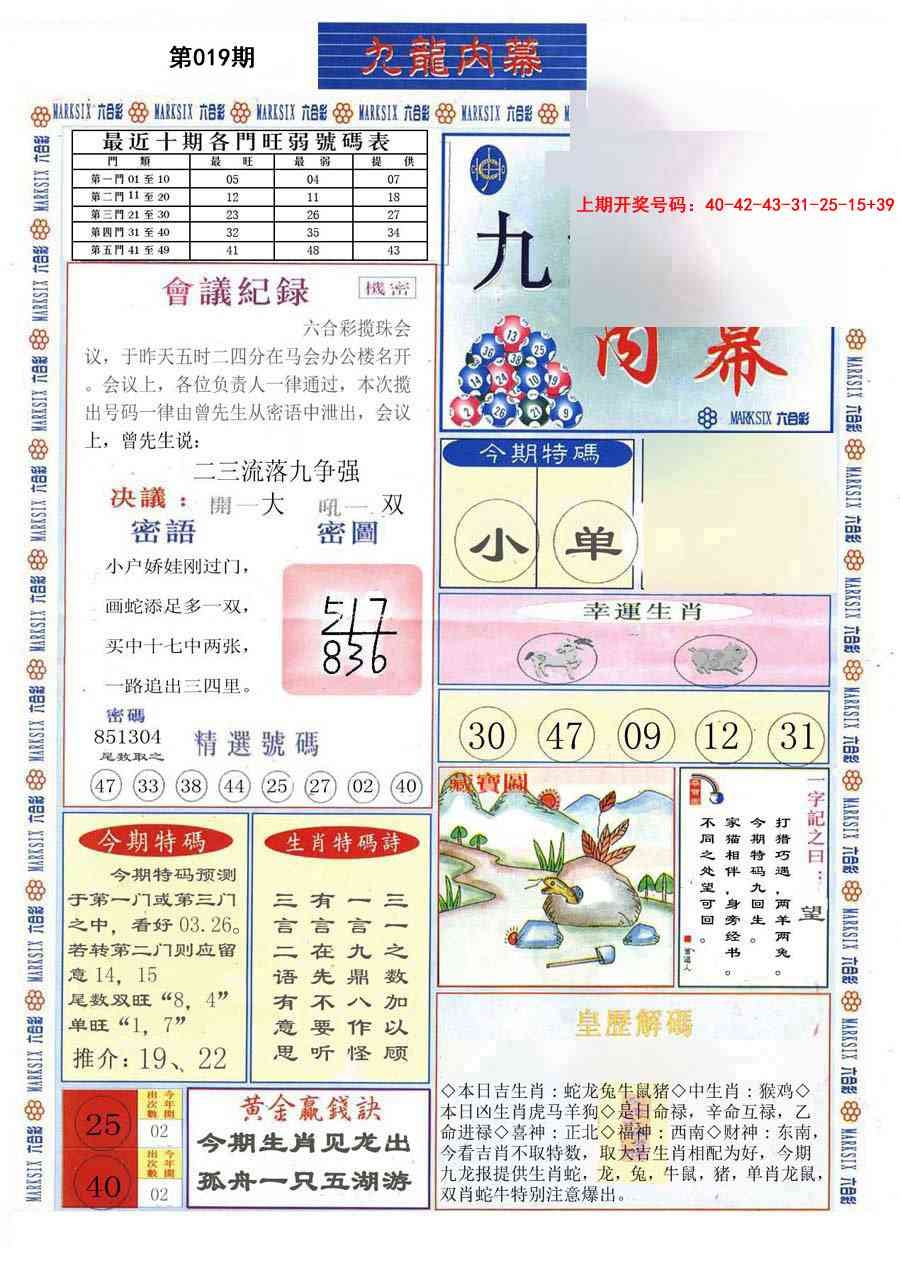 第019期
九龍内幕
MARKSIX 六合彩 MARKSIX 六合彩 MARKSIX 六合彩 MARKSIX 六合彩 MARKSIX 六合彩
最近十期各門旺弱號碼表
門類 最旺 最弱 提供
第一門 01 至 10 05 04 07
第二門 11 至 20 12 11 18
第三門 21 至 30 23 26 27
第四門 31 至 40 32 35 34
第五門 41 至 49 41 48 43
上期开奖号码：40-42-43-31-25-15+39
九
内幕
13
36 38 25
14 24 10 19
2 26 21 9
MARKSIX 六合彩
會議紀録
機密
六合彩搅珠会
议，于昨天五时二四分在马会办公楼名开
。会议上，各位负责人一律通过，本次搅
出号码一律由曾先生从密语中泄出，会议
上，曾先生说：
二三流落九争强
决議：開一大 吼一双
密語 密圖
小户娇娃刚过门，
画蛇添足多一双，
买中十七中两张，
一路追出三四里。
517
836
密碼
851304
尾数取之
精選號碼
47 33 38 44 25 27 02 40
今期特碼
小 单
幸運生肖
30 47 09 12 31
藏寶圖
一字記之曰：
望
打猎巧遇，两羊两兔。
今期特码九回生。
家猫相伴，身旁经书。
不同之处望可回。
今期特碼
今期特码预测
于第一门或第三门
之中，看好 03.26。
若转第二门则应留
意 14，15
尾数双旺“8，4”
单旺“1，7”
推介：19、22
生肖特碼詩
三一之数加以顾
一言九鼎八作怪
有言在先不要听
三言二语有意思
皇歷解碼
◇本日吉生肖：蛇龙兔牛鼠猪◇中生肖：猴鸡◇
本日凶生肖虎马羊狗◇是日命禄，辛命互禄，乙
命进禄◇喜神：正北◇福神：西南◇财神：东南，
今看吉肖不取特数，取大吉生肖相配为好，今期
九龙报提供生肖蛇，龙，兔，牛鼠，猪，单肖龙鼠，
双肖蛇牛特别注意爆出。
25 今年開出次數 02
40 今年開出次數 02
黄金贏錢訣
今期生肖见龙出
孤舟一只五湖游